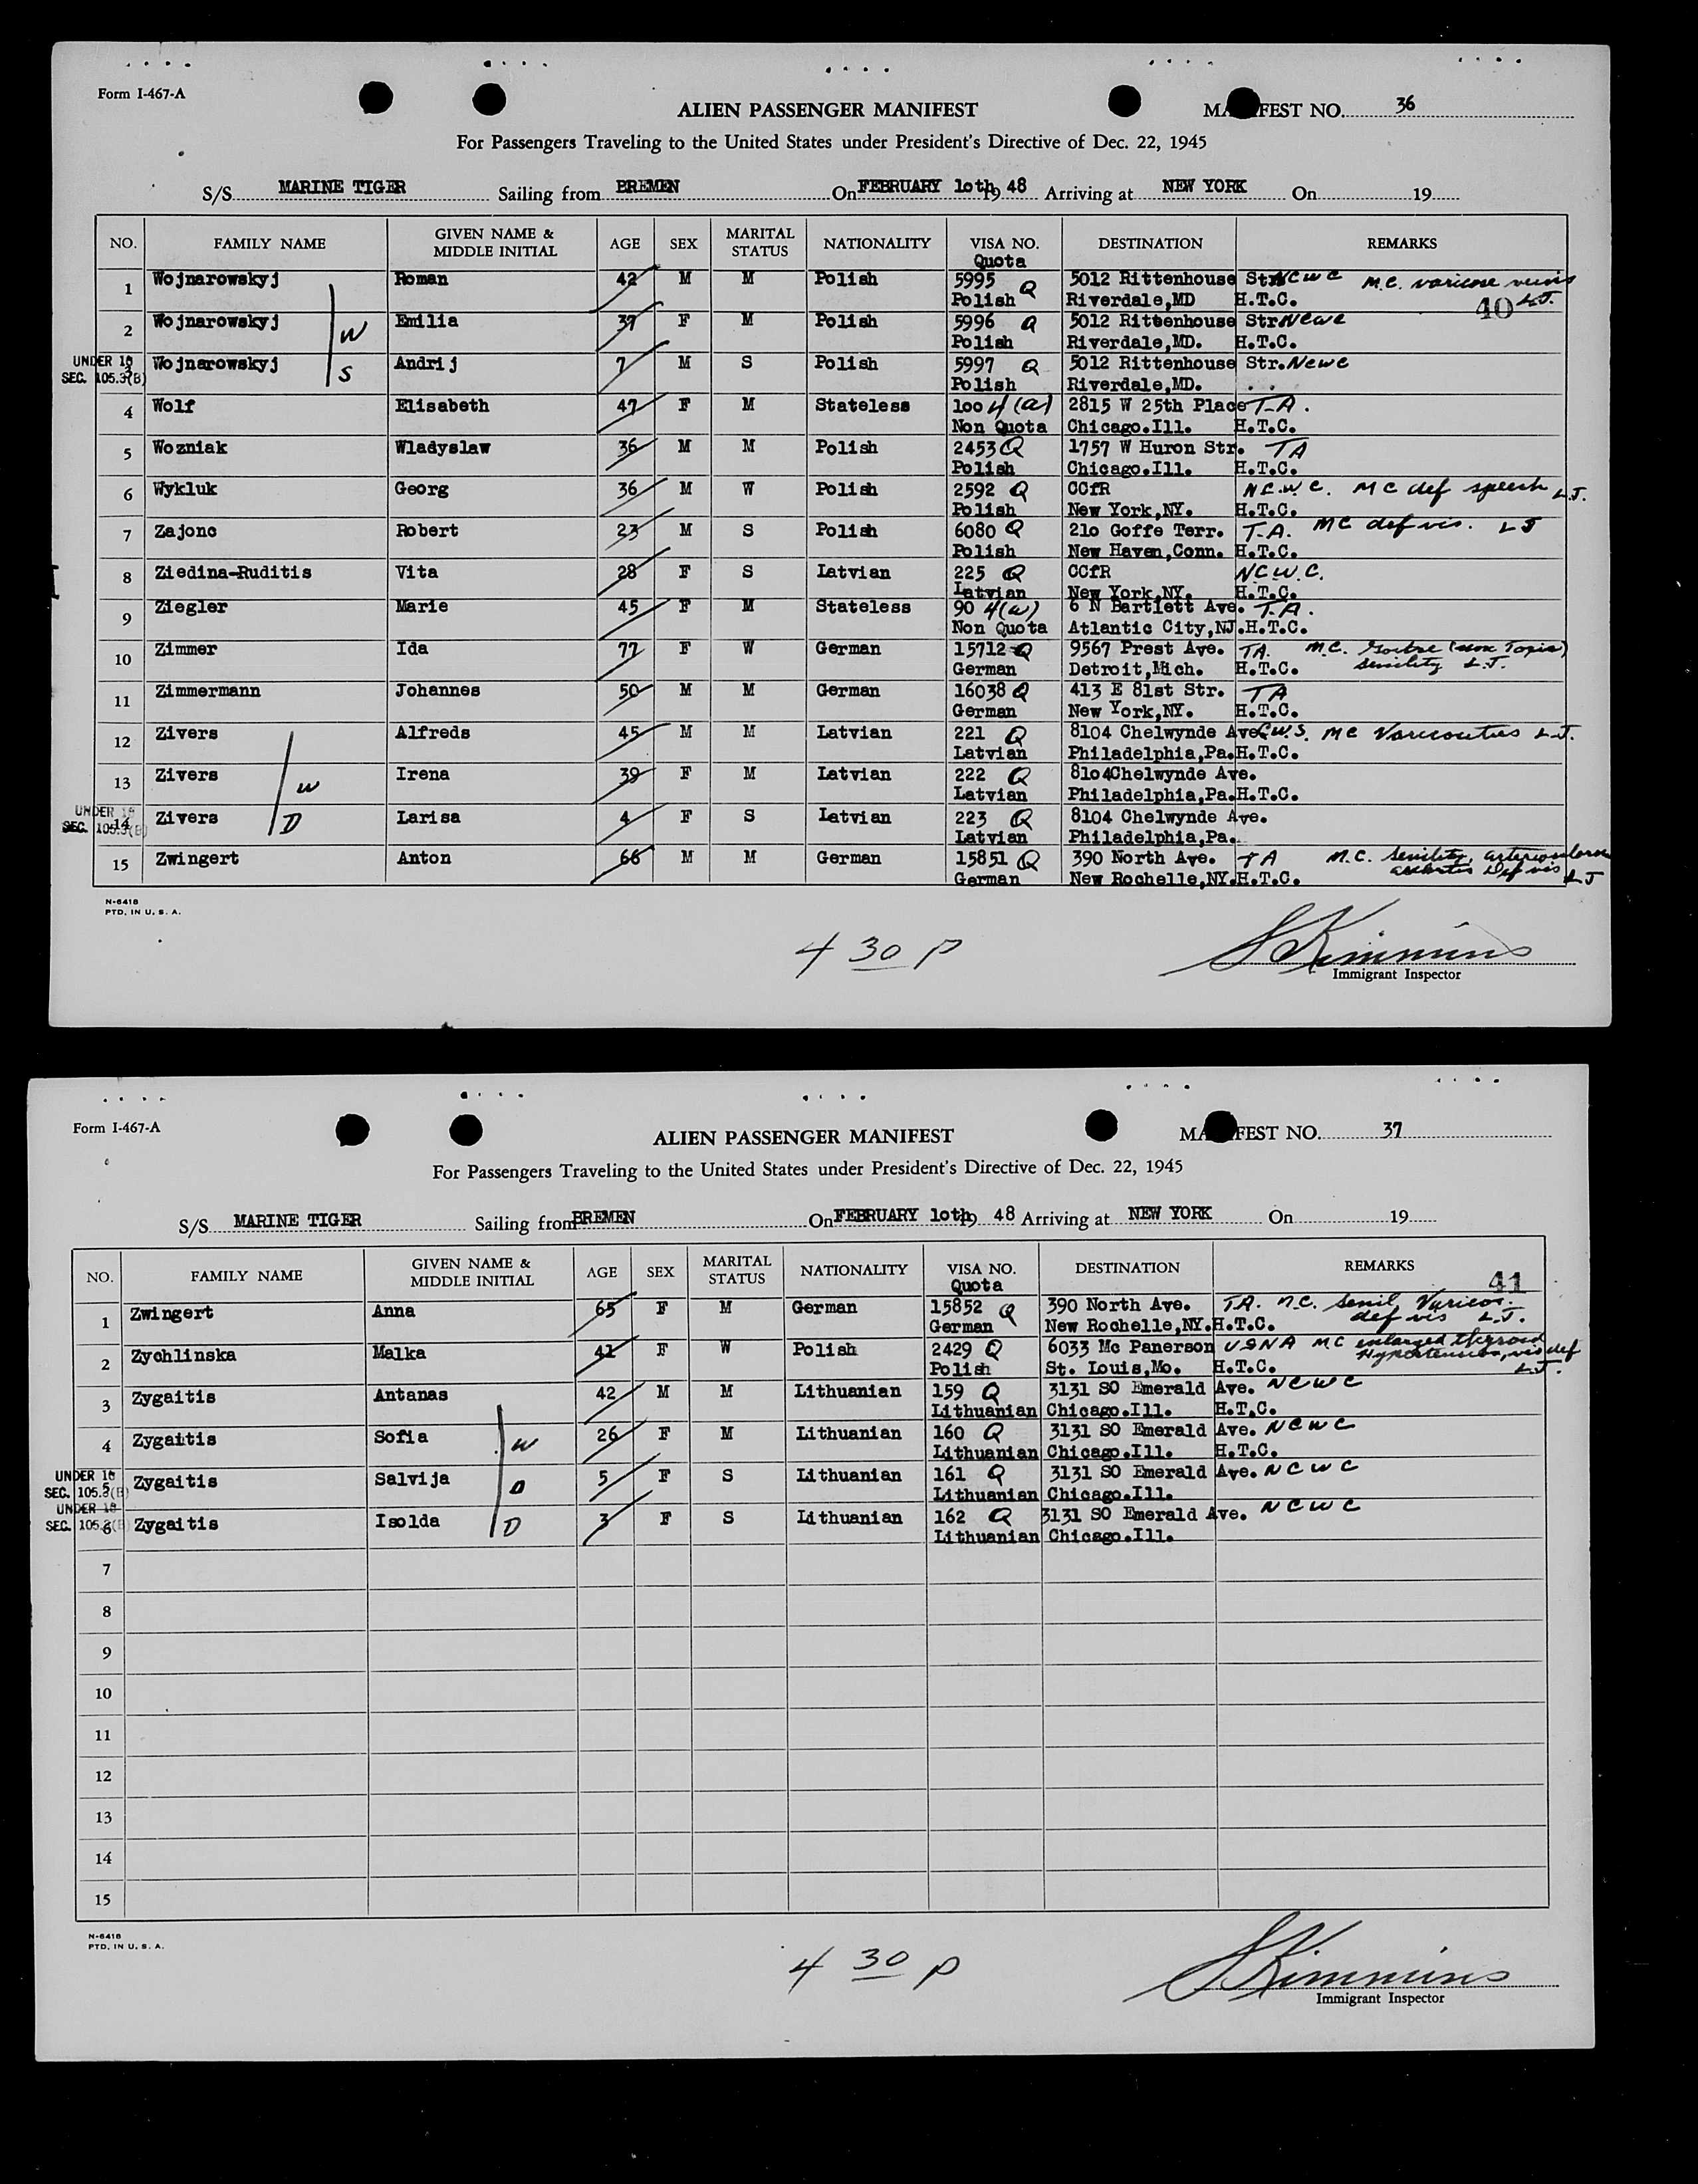 Form I-467-A
ALIEN PASSENGER MANIFEST
MA FEST NO. 36
For Passengers Traveling to the United States under President's Directive of Dec. 22, 1945
S/S MARINE TIGER Sailing from BREMEN On FEBRUARY loth 19 48 Arriving at NEW YORK On 19
NO. FAMILY NAME GIVEN NAME & MIDDLE INITIAL AGE SEX MARITAL STATUS NATIONALITY VISA NO. Quota DESTINATION REMARKS
40
1 Wojnarowskyj Roman 42 M M Polish 5995 Q 5012 Rittenhouse Str. NCWC M.C. varicose veins
Polish Riverdale,MD H.T.C. L.J.
2 Wojnarowskyj W Emilia 37 F M Polish 5996 Q 5012 Rittenhouse Str. NCWC
Polish Riverdale,MD. H.T.C.
UNDER 16 SEC. 105.3(B)
3 Wojnarowskyj S Andrij 7 M S Polish 5997 Q 5012 Rittenhouse Str. NCWC
Polish Riverdale,MD.
4 Wolf Elisabeth 47 F M Stateless 100 4(a) 2815 W 25th Place T-A.
Non Quota Chicago.Ill. H.T.C.
5 Wozniak Wladyslaw 36 M M Polish 2453 Q 1757 W Huron Str. TA
Polish Chicago.Ill. H.T.C.
6 Wykluk Georg 36 M W Polish 2592 Q CCfR N.C.W.C. MC def speech L.J.
Polish New York,NY. H.T.C.
7 Zajonc Robert 23 M S Polish 6080 Q 21o Goffe Terr. T-A. MC def vis. LJ
Polish New Haven,Conn. H.T.C.
8 Ziedina-Ruditis Vita 28 F S Latvian 225 Q CCfR N.C.W.C.
Latvian New York,NY. H.T.C.
9 Ziegler Marie 45 F M Stateless 90 4(a) 6 N Bartlett Ave. T.A.
Non Quota Atlantic City,NJ. H.T.C.
10 Zimmer Ida 77 F W German 15712 Q 9567 Prest Ave. TA. M.C. Goitre (non Toxic)
German Detroit,Mich. H.T.C. senility L.J.
11 Zimmermann Johannes 50 M M German 16038 Q 413 E 81st Str. TA
German New York,NY. H.T.C.
12 Zivers Alfreds 45 M M Latvian 221 Q 8104 Chelwynde Ave C.W.S. MC L.J.
Latvian Philadelphia,Pa. H.T.C.
13 Zivers W Irena 39 F M Latvian 222 Q 81o4Chelwynde Ave.
Latvian Philadelphia,Pa. H.T.C.
UNDER 16 SEC. 105.3(B)
14 Zivers D Larisa 4 F S Latvian 223 Q 8104 Chelwynde Ave.
Latvian Philadelphia,Pa.
15 Zwingert Anton 66 M M German 15851 Q 390 North Ave. TA M.C. Senility,
German New Rochelle,NY. H.T.C. Def vis LJ
N-6418
PTD. IN U. S. A.
4 30 P
S Kimmins
Immigrant Inspector
Form I-467-A
ALIEN PASSENGER MANIFEST
MA FEST NO. 37
For Passengers Traveling to the United States under President's Directive of Dec. 22, 1945
S/S MARINE TIGER Sailing from BREMEN On FEBRUARY loth 19 48 Arriving at NEW YORK On 19
NO. FAMILY NAME GIVEN NAME & MIDDLE INITIAL AGE SEX MARITAL STATUS NATIONALITY VISA NO. Quota DESTINATION REMARKS
41
1 Zwingert Anna 65 F M German 15852 Q 390 North Ave. TA. M.C. Senil, Varicos.
German New Rochelle,NY. H.T.C. def vis L.J.
2 Zychlinska Malka 41 F W Polish 2429 Q 6033 Mc Panerson USNA MC enlarged thyroid
Polish St. Louis,Mo. H.T.C. Hypertension, vis def L.J.
3 Zygaitis Antanas 42 M M Lithuanian 159 Q 3131 SO Emerald Ave. NCWC
Lithuanian Chicago.Ill. H.T.C.
4 Zygaitis Sofia W 26 F M Lithuanian 160 Q 3131 SO Emerald Ave. NCWC
Lithuanian Chicago.Ill. H.T.C.
UNDER 16 SEC. 105.3(B)
5 Zygaitis Salvija D 5 F S Lithuanian 161 Q 3131 SO Emerald Ave. NCWC
Lithuanian Chicago.Ill.
UNDER 16 SEC. 105.3(B)
6 Zygaitis Isolda D 3 F S Lithuanian 162 Q 3131 SO Emerald Ave. NCWC
Lithuanian Chicago.Ill.
7
8
9
10
11
12
13
14
15
N-6418
PTD. IN U. S. A.
4 30 P
S Kimmins
Immigrant Inspector